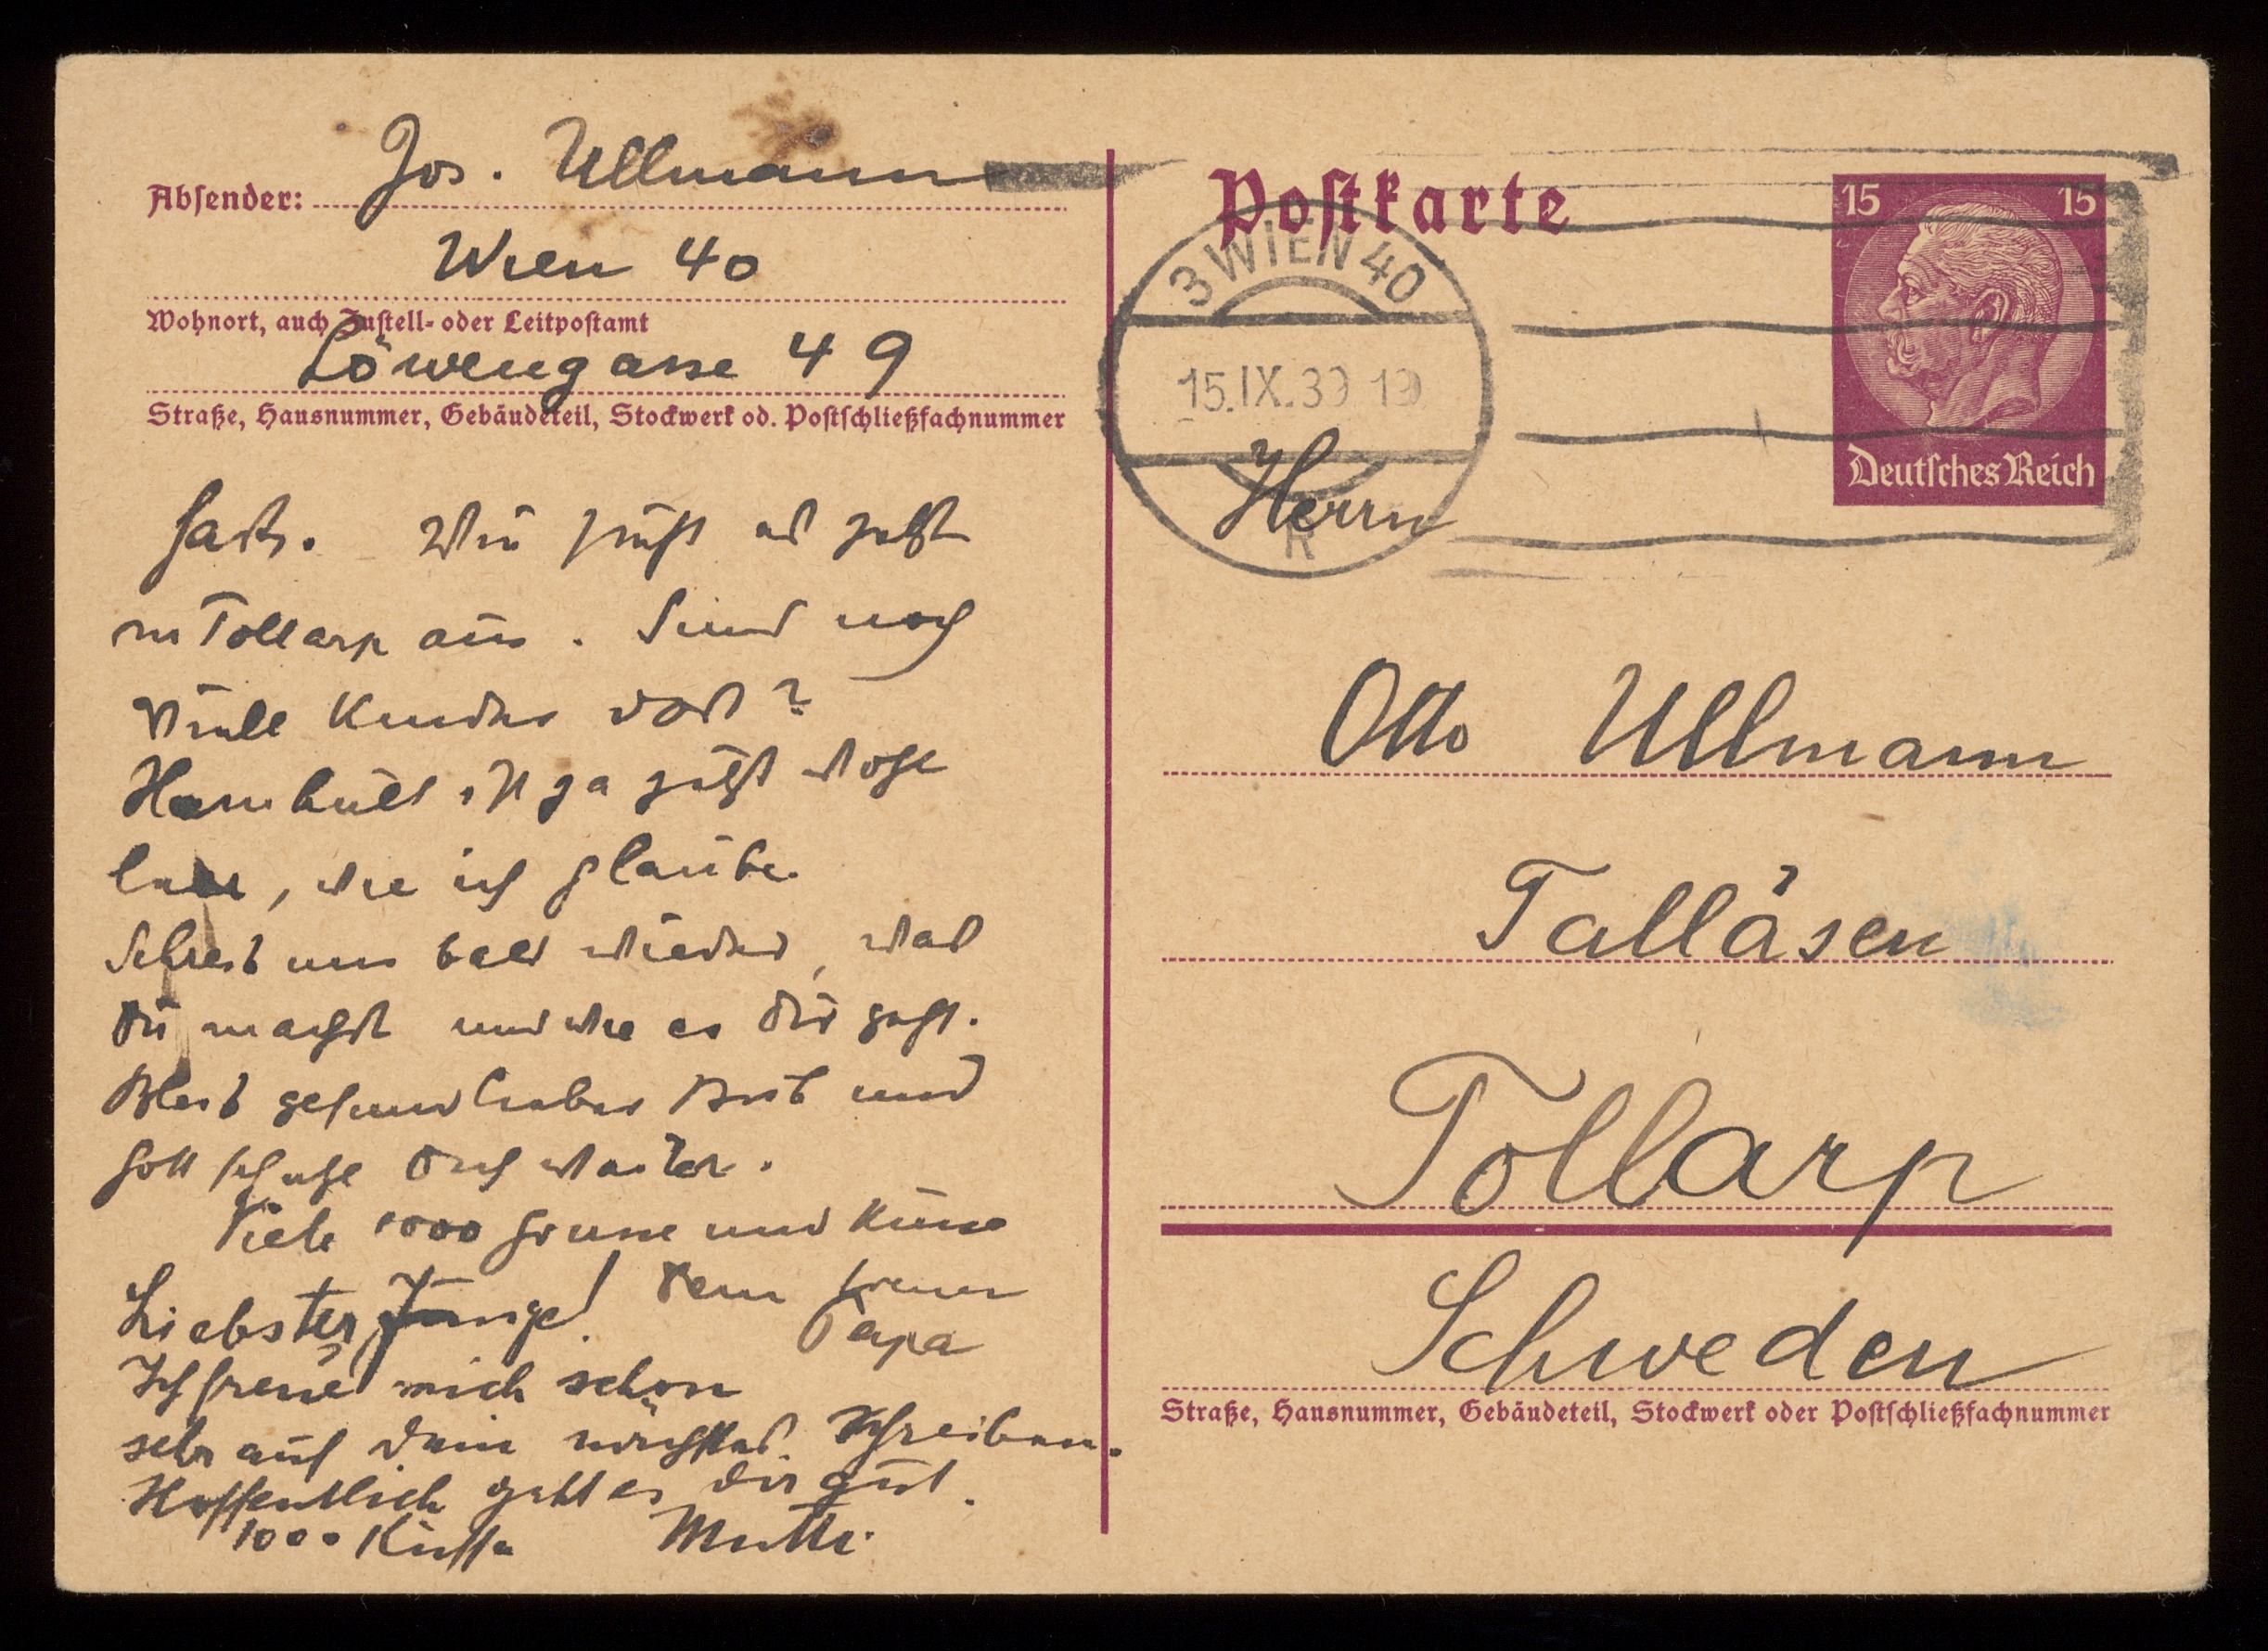 Absender: Jos. Ullmann
Wien 40
Wohnort, auch Zustell- oder Leitpostamt
Löwengasse 49
Straße, Hausnummer, Gebäudeteil, Stockwerk od. Postschließfachnummer
hast. Wie sieht es jetzt
in Tollarp aus. Sind noch
viele Kinder dort?
ist ja jetzt wohl
leer, wie ich glaube.
Schreib uns bald wieder, was
Du machst und wie es Dir geht.
Bleib gesund lieber Bub und
Gott schütze Dich weiter.
Viele 1000 Grüsse und Küsse
Dein treuer
Papa
Liebster Junge!
Ich freue mich schon
sehr auf Dein nächstes Schreiben.
Hoffentlich geht es Dir gut.
1000 Küsse Mutti
Postkarte
3 WIEN 40
15.IX.39 19
R
15 15
Deutsches Reich
Herrn
Otto Ullmann
Tallåsen
Tollarp
Schweden
Straße, Hausnummer, Gebäudeteil, Stockwerk oder Postschließfachnummer